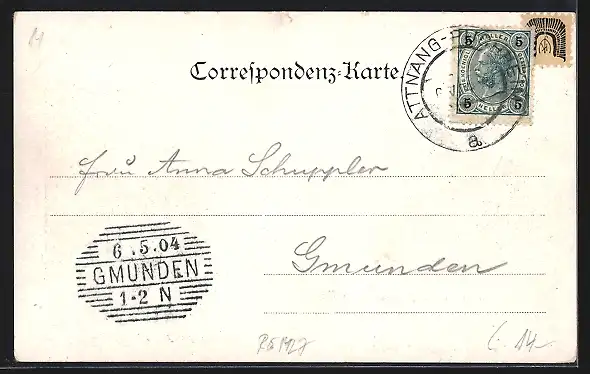 14
5 HELLER 5
5 HELLER 5
ATTNANG-P
a
Correspondenz-Karte.
Frau Anna Schuppler
6.5.04
GMUNDEN
1-2 N
Gmunden
14